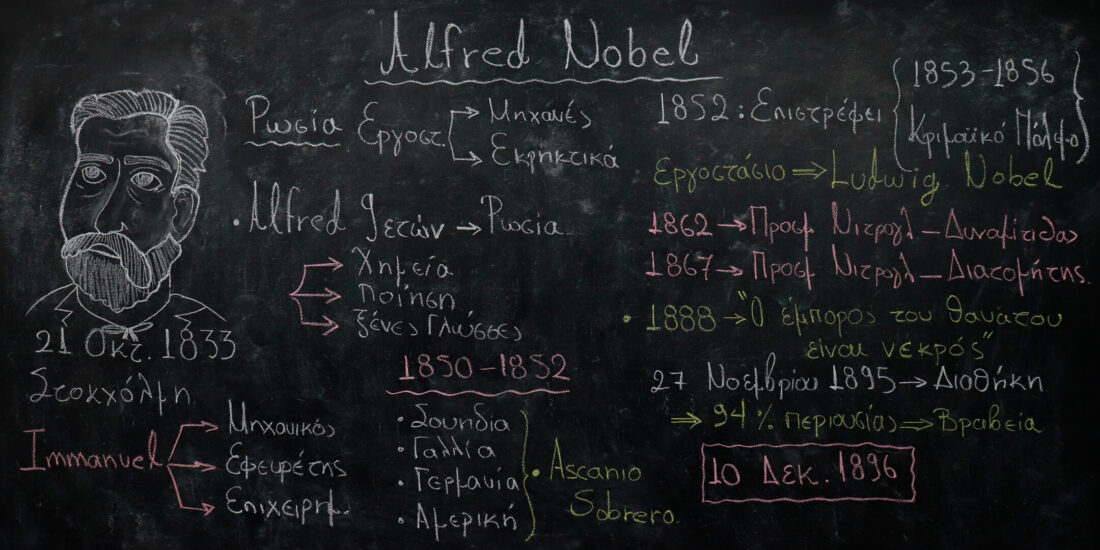 Alfred Nobel
Ρωσία Εργοστ. → Μηχανές
→ Εκρηκτικά
• Alfred 9 ετών → Ρωσία
→ Χημεία
→ Ποίηση
→ Ξένες Γλώσσες
21 Οκτ. 1833
Στοκχόλμη
Immanuel → Μηχανικός
→ Εφευρέτης
→ Επιχειρημ.
1850-1852
• Σουηδία
• Γαλλία
• Γερμανία
• Αμερική
• Ascanio
Sobrero.
1852: Επιστρέφει
1853-1856
Κριμαϊκό Πόλεμο
Εργοστάσιο ⇒ Ludwig Nobel
1862 → Προσμ Νιτρογλ – Δυναμίτιδας
1867 → Προσμ Νιτρογλ – Διατομίτης.
• 1888 → "Ο έμπορος του θανάτου
είναι νεκρός"
27 Νοεμβρίου 1895 → Διαθήκη
⇒ 94% περιουσίας ⇒ Βραβεία
10 Δεκ. 1896